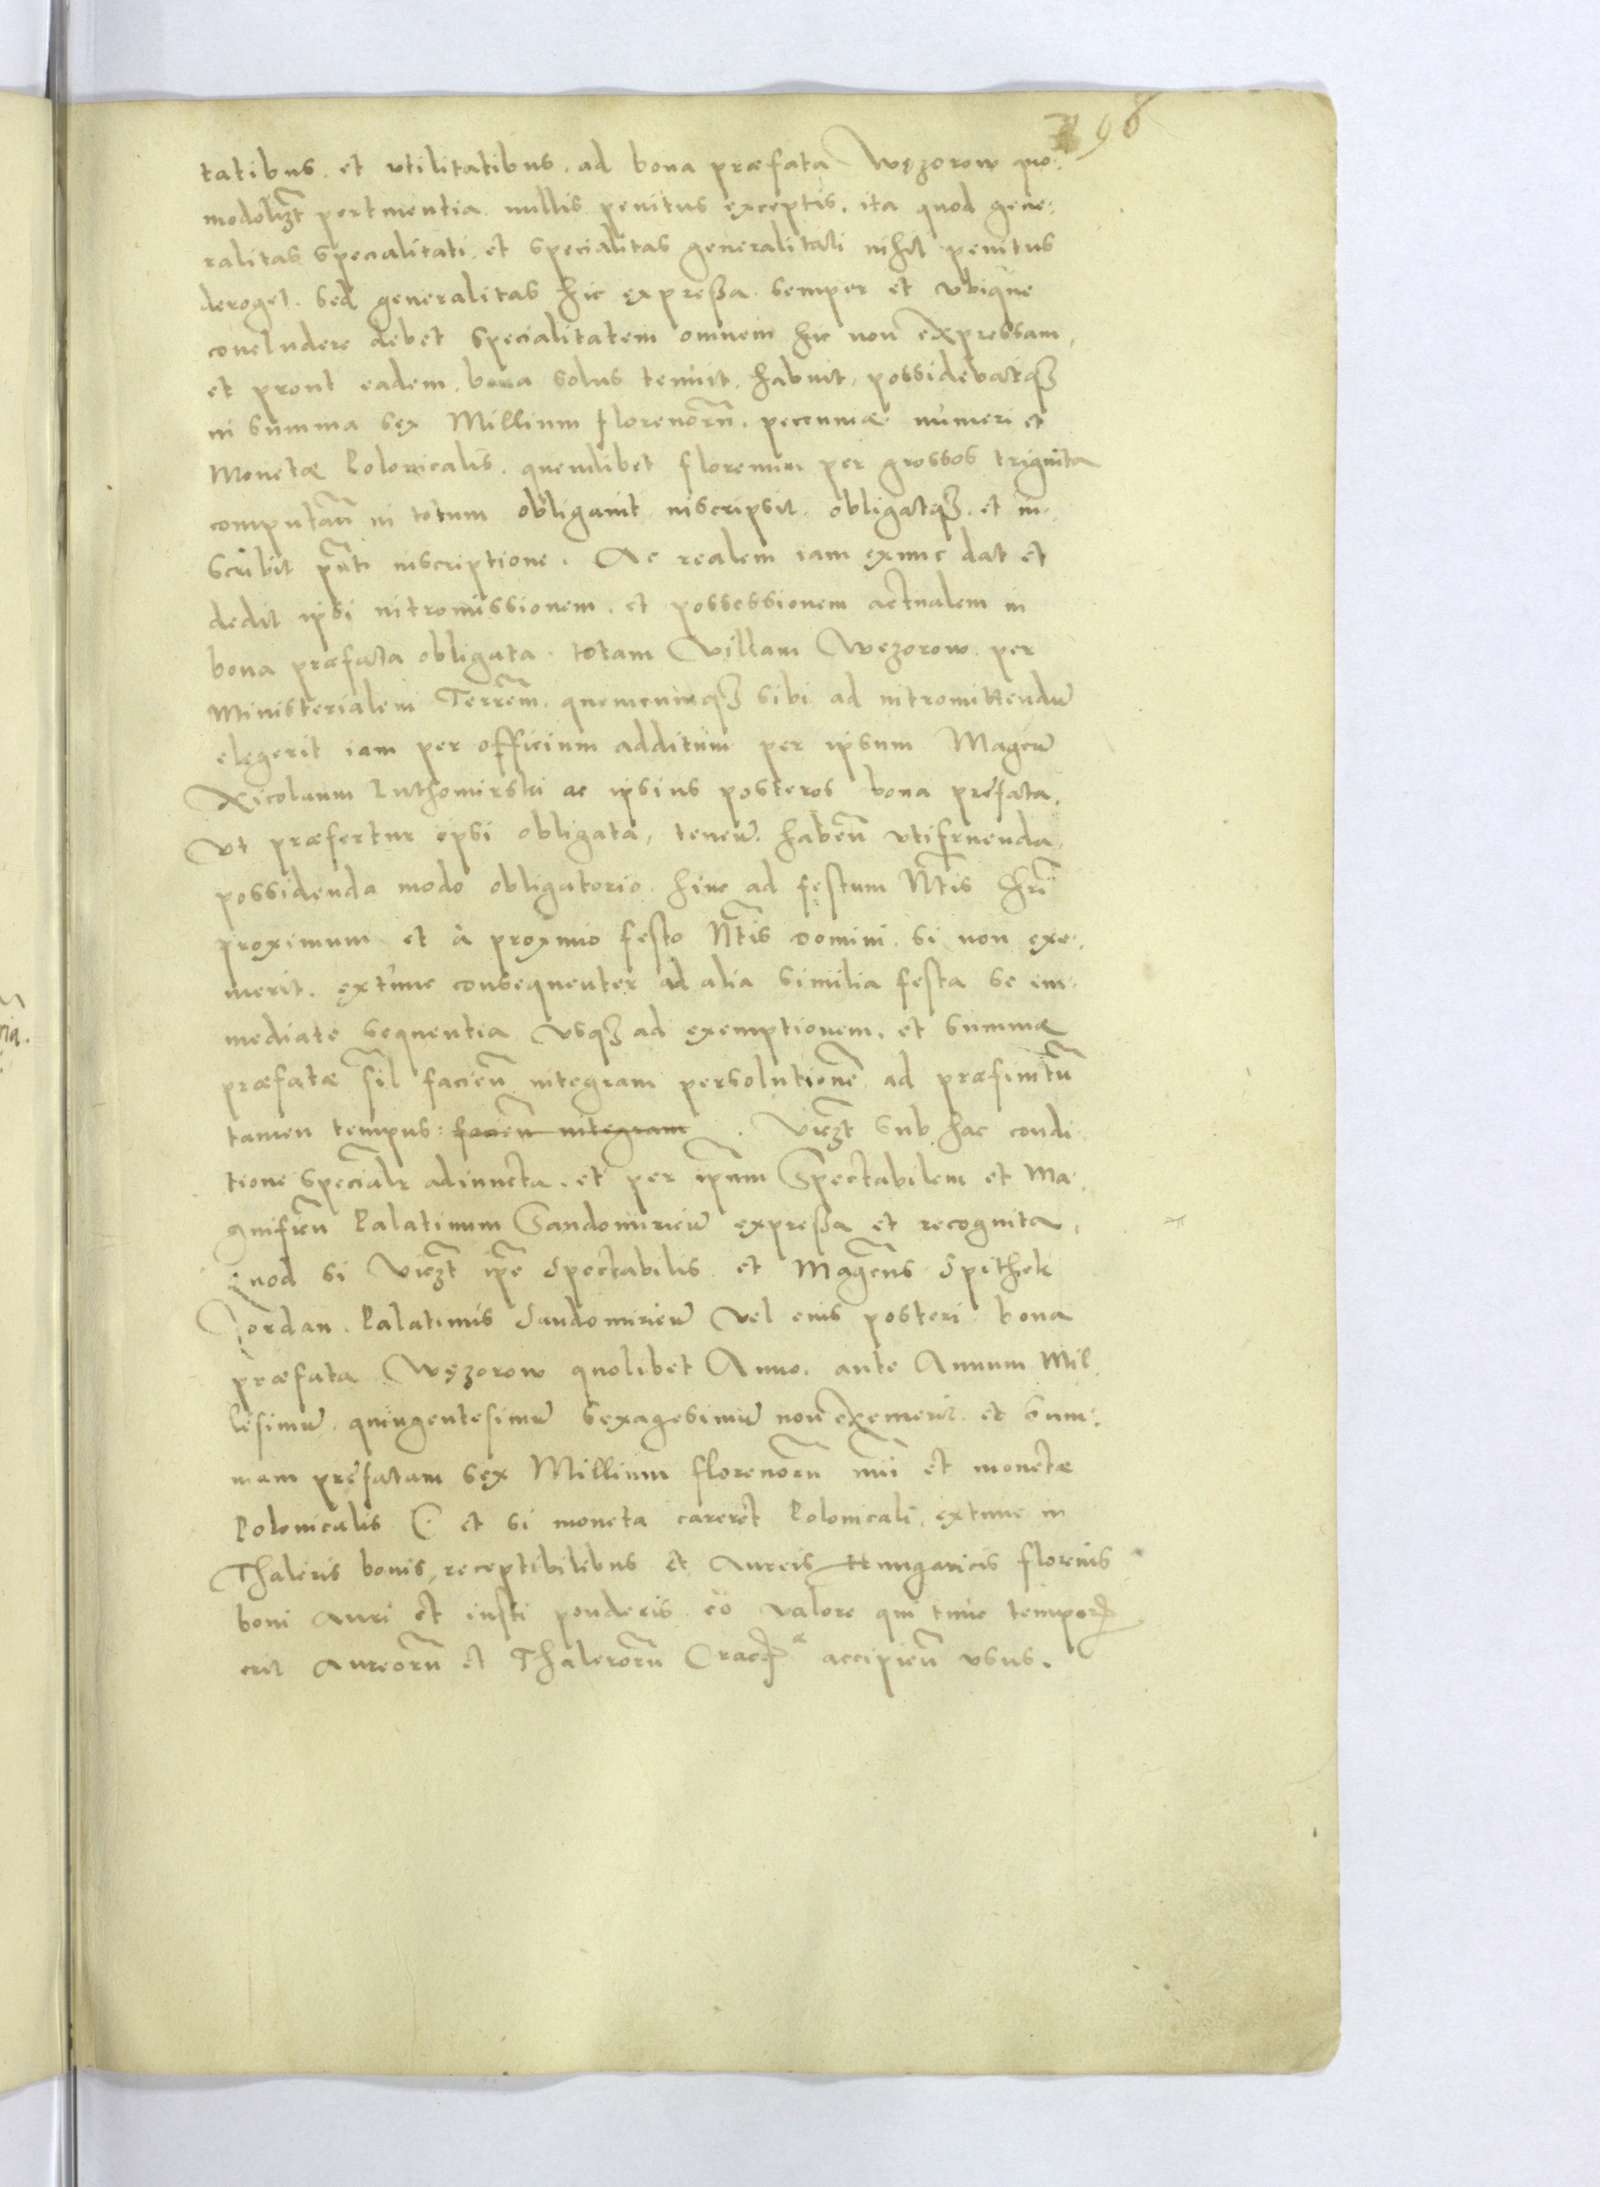 96
tatibus. et vtilitatibus. ad bona præfata Węzorow quo:
modolizt pertinentia nullis penitus exceptis. ita quod gene:
ralitas specialitati et specialitas generalitati nihil penitus
deroget. sed generalitas hic expressa semper et vbique
concludere debet specialitatem omnem hic non expressam,
et prout eadem bona solus tenuit. habuit, possidebatqȝ
in summa sex Millium florenorũ. pecuniæ numeri et
Monetæ Polonicalis. quemlibet florenum per grossos triginta
computañ in totum obligauit inscripsit. obligatqȝ. et in
scribit pñti inscriptione. Ac realem iam exnunc dat et
dedit ipsi intromissionem. et possessionem actualem in
bona præfata obligata. totam Villam Węzorow per
Ministerialem Terrẽm. quemcunqȝ sibi ad intromittendũ
elegerit iam per officium additum per ipsum Magcũ
Nicolaum Luthomirski ac ipsius posteros bona prefata,
Vt præfertur ipsi obligata, teneñ. habeñ vtifruenda,
possidenda modo obligatorio hinc ad festum Ntis Chri
proximum et à proximo festo Ntis domini. si non exe:
merit. extunc consequenter ad alia similia festa se im
mediate sequentia Vsqȝ ad exemptionem. et summæ
præfatæ sil facieñ integram persolutionẽ ad præfinitũ
tamen tempus: facieñ integram. Vizt sub hac condi
tione specialr adiuncta. et per ipsum Spectabilem et Ma:
gnificũ Palatinum Sandomirieñ expressa et recognita,
quod si Vizt ipe Spectabilis et Magcus Spithek
Jordan. Palatinus Sandomirieñ Vel eius posteri bona
præfata Węzorow quolibet Anno. ante Annum Mil
lesimũ quingentesimũ sexagesimũ non exemerit et sum:
mam prefatam sex Millium florenorũ nũi et monetæ
Polonicalis (: et si moneta careret Polonicali, extunc in
Thaleris bonis, receptibilibus et Aureis Hungaricis florenis
boni Auri et iusti ponderis eo valore qui tunc tempor
erit Aureorũ et Thalerorũ accipieñ vsus.